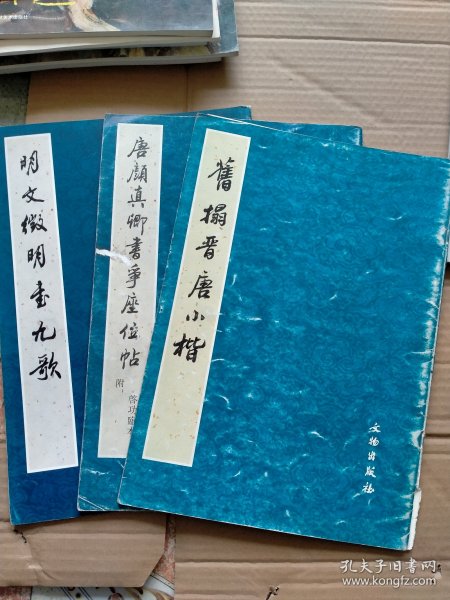 明文徵明書九歌
唐顔真卿書爭座位帖
附
啓功臨本
舊搨晋唐小楷
文物出版社
孔夫子旧书网
www.kongfz.com